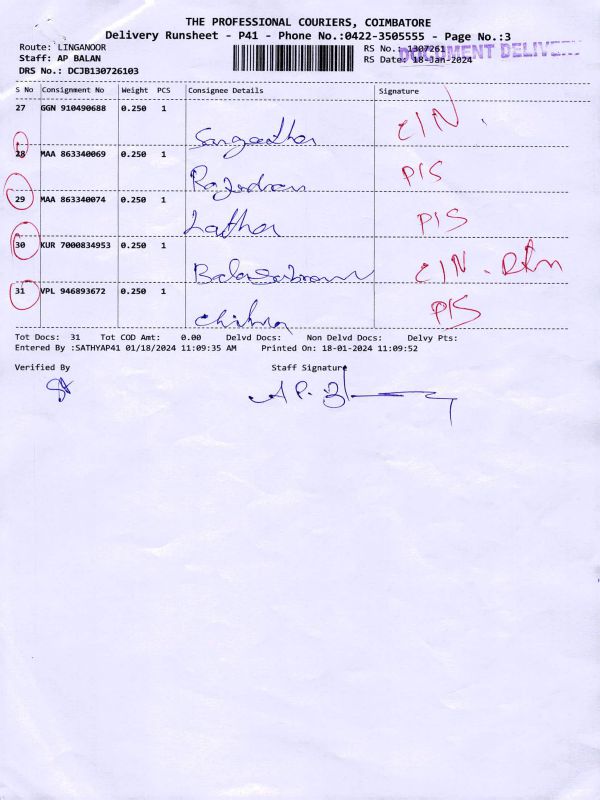 THE PROFESSIONAL COURIERS, COIMBATORE
Delivery Runsheet - P41 - Phone No.:0422-3505555 - Page No.:3
Route: LINGANOOR RS No.: 1307261
DOCUMENT DELIVERY
Staff: AP BALAN RS Date: 18-Jan-2024
DRS No.: DCJB130726103
S No Consignment No Weight PCS Consignee Details Signature
27 GGN 910490688 0.250 1 CIN
28 MAA 863340069 0.250 1 PIS
Rajendran
29 MAA 863340074 0.250 1 PIS
Latha
30 KUR 7000834953 0.250 1 CIN
31 VPL 946893672 0.250 1 PIS
Chitra
Tot Docs: 31 Tot COD Amt: 0.00 Delvd Docs: Non Delvd Docs: Delvy Pts:
Entered By :SATHYAP41 01/18/2024 11:09:35 AM Printed On: 18-01-2024 11:09:52
Verified By Staff Signature